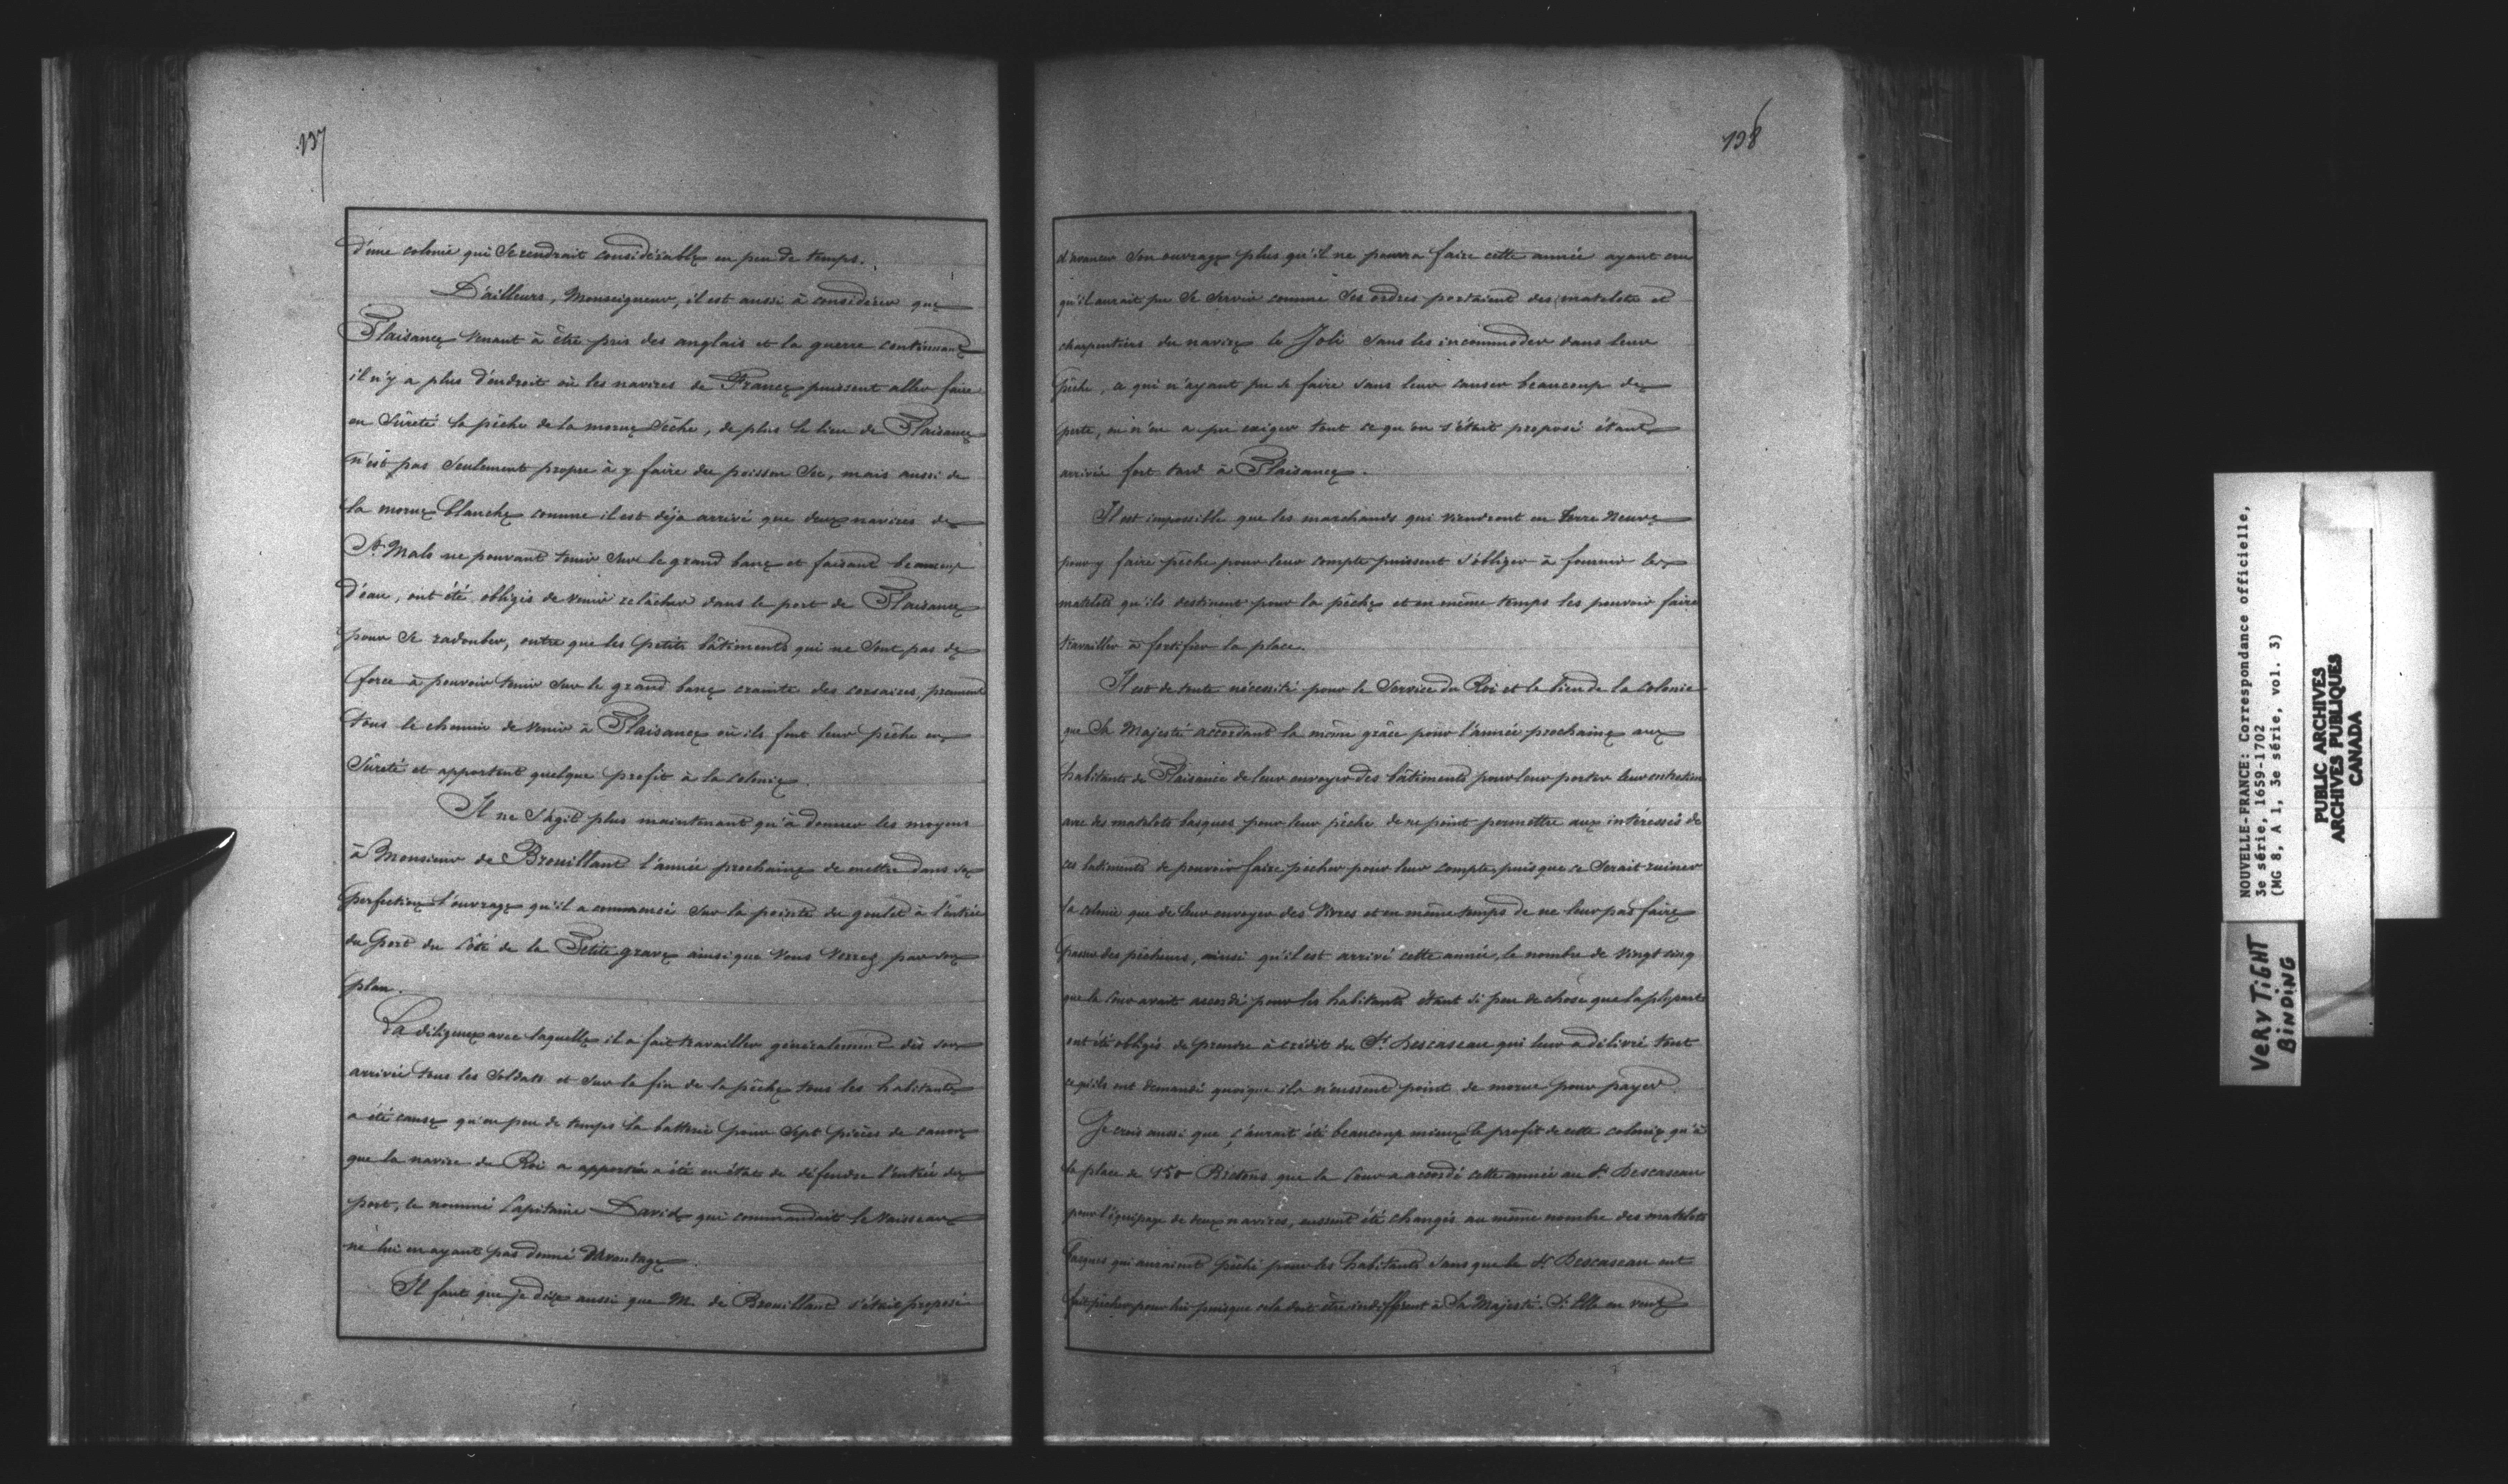 137
d'une colonie qui se rendrait considérable en peu de temps.
D'ailleurs, Monseigneur, il est aussi à considérer que
Plaisance venant à être pris des anglais et la guerre continuant
il n'y a plus d'endroit où les navires de France puissent aller faire
en sûreté la pêche de la morue sèche, de plus le lieu de Plaisance
n'est pas seulement propre à y faire du poisson sec, mais aussi de
la morue blanche comme il est déja arrivé que deux navires de
St. Malo ne pouvant tenir sur le grand banc et faisant beaucoup
d'eau, ont été obligés de venir relâcher dans le port de Plaisance
pour se radouber, outre que les petits bâtiments qui ne sont pas de
force à pouvoir tenir sur le grand banc crainte des corsaires, prennent
tous le chemin de venir à Plaisance où ils font leur pêche en
sûreté et apportent quelque profit à la colonie.
Il ne s'agit plus maintenant qu'à donner les moyens
à Monsieur de Brouillant l'année prochaine de mettre dans sa
perfection l'ouvrage qu'il a commencé sur la pointe du goulet à l'entrée
du port du côté de la Petite grave ainsi que vous verrez par son
plan.
La diligence avec laquelle il a fait travailler généralement dès son
arrivée tous les soldats et sur la fin de la pêche tous les habitants
a été cause qu'en peu de temps la batterie pour sept pièces de canon
que la navire du Roi a apportés a été en état de défendre l'entrée du
port, le nommé Capitaine David qui commandait le vaisseau
ne lui en ayant pas donné davantage.
Il faut que je dise aussi que M. de Brouillant s'était proposé
138
d'avancer son ouvrage plus qu'il ne pourra faire cette année ayant cru
qu'il aurait pu se servir comme ses ordres portaient des matelots et
charpentiers du navire le Joli sans les incommoder dans leur
pêche, ce qui n'ayant pu se faire sans leur causer beaucoup de
perte, on n'en a pu exiger tout ce qu'on s'était proposé étant
arrivé fort tard à Plaisance.
Il est impossible que les marchands qui viendront en Terre Neuve
pour y faire pêche pour leur compte puissent s'obliger à fournir les
matelots qu'ils destinent pour la pêche et en même temps les pouvoir faire
travailler à fortifier la place.
Il est de toute nécessité pour le service du Roi et le bien de la colonie
que Sa Majesté accordant la même grâce pour l'année prochaine aux
habitants de Plaisance de leur envoyer des bâtiments pour leur porter leur entretien
avec des matelots basques pour leur pêche de ne point permettre aux intéressés de
ces batiments de pouvoir faire pêcher pour leur compte, puisque ce serait ruiner
la colonie que de leur envoyer des vivres et en même temps de ne leur pas faire
passer des pêcheurs, ainsi qu'il est arrivé cette année, le nombre de vingt cinq
que la Cour avait accordé pour les habitants étant si peu de chose que la plupart
ont été obligés de prendre à crédit du Sr. Descaseau qui leur a délivré tout
ce qu'ils ont demandé quoique ils n'eussent point de morue pour payer.
Je crois aussi que ç'aurait été beaucoup mieux le profit de cette colonie qu'à
la place de 150 Bretons que la Cour a accordé cette année au Sr. Descaseau
pour l'équipage de deux navires, eussent été changés au même nombre des matelots
basques qui auraient pêché pour les habitants sans que le Sr. Descaseau eut
fait pêcher pour lui puisque cela doit être indifférent à Sa Majesté. Si Elle en veut
NOUVELLE-FRANCE: Correspondance officielle,
3e série, 1659-1702
(MG 8, A 1, 3e série, vol. 3)
PUBLIC ARCHIVES
ARCHIVES PUBLIQUES
CANADA
VERY TIGHT
BINDING